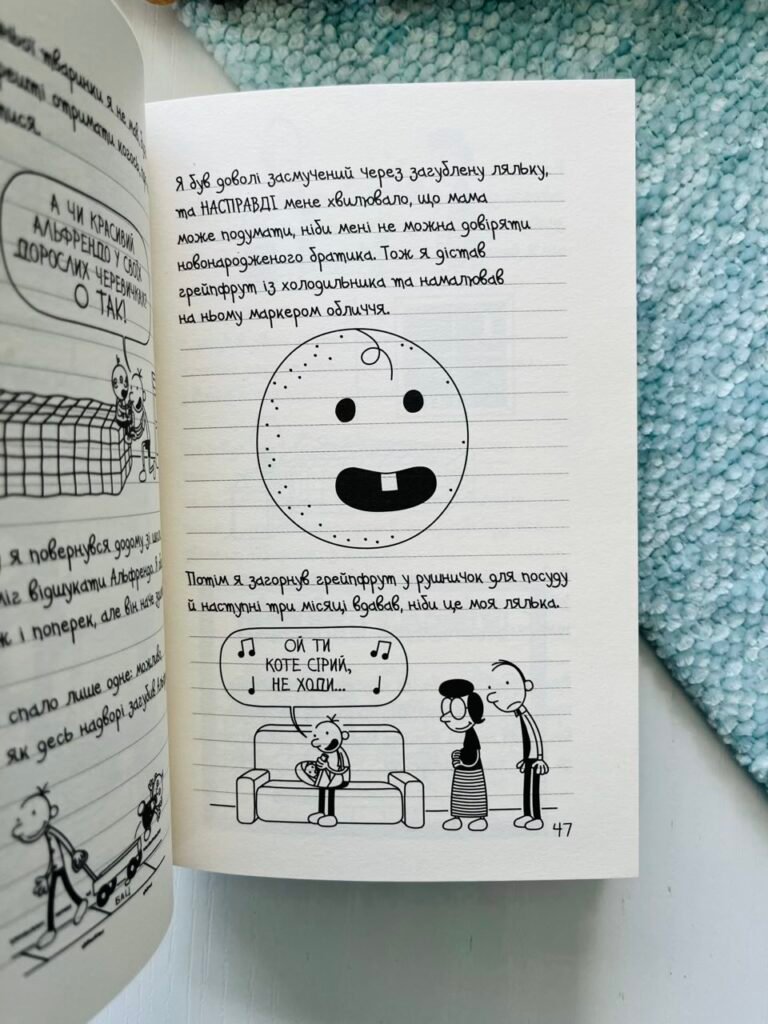 тваринки я не мав,
отримати когось
А ЧИ КРАСИВИЙ
АЛЬФРЕНДО У СВОЇХ
ДОРОСЛИХ ЧЕРЕВИЧКАХ?
О ТАК!
я повернувся додому зі
відшукати Альфрендо.
і поперек, але він наче
спало лише одне: можливо,
як десь надворі загубив
БАЦ
Я був доволі засмучений через загублену ляльку,
та НАСПРАВДІ мене хвилювало, що мама
може подумати, ніби мені не можна довіряти
новонародженого братика. Тож я дістав
грейпфрут із холодильника та намалював
на ньому маркером обличчя.
Потім я загорнув грейпфрут у рушничок для посуду
й наступні три місяці вдавав, ніби це моя лялька.
ОЙ ТИ
КОТЕ СІРИЙ,
НЕ ХОДИ...
47